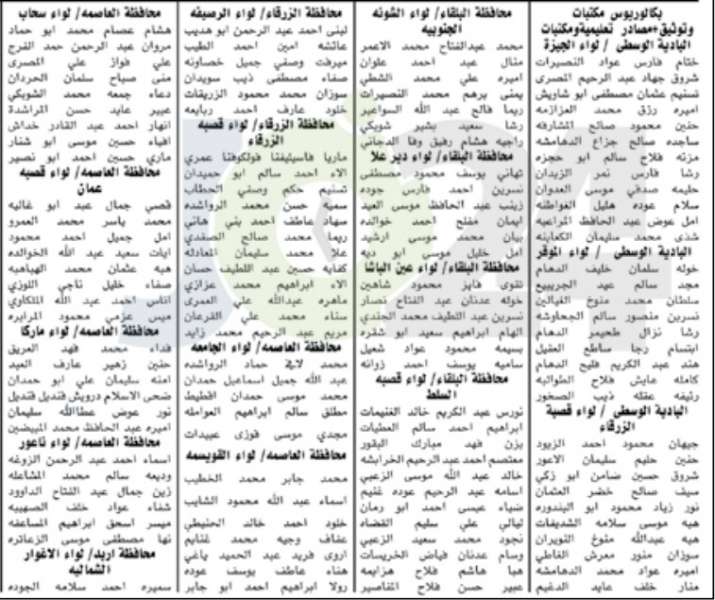 بكالوريوس مكتبات
وتوثيق+مصادر تعليمية ومكتبات
البادية الوسطى / لواء الجيزة
ختام فارس عواد النصيرات
شروق جهاد عبد الرحيم المصري
تسنيم عثمان مصطفى ابو شاويش
اميره رزق محمد العزازمه
حنين محمود صالح المشارفه
ساجده صالح جزاع الدهامشه
مزنه فلاح سالم ابو حجزه
رشا فارس نمر الزيدان
حليمه صدفي موسى العدوان
سلام عوده هليل العواطله
امل عوض عبد الحافظ المراعيه
شذى محمد سليمان الكعابنه
البادية الوسطى / لواء الموقر
خوله سلمان خليف الدهام
مجد سالم عبد الجريبيع
سلطان محمد منوخ الفيالين
نسرين منصور سالم الجعاوشه
رشا نزال طحيمر الدهام
ابتسام رجا ساطع العقيل
هند عبد الكريم فليح الدهام
كامله عايش فلاح الطوالبه
رئيفه عقله ذيب الصخور
البادية الوسطى / لواء قصبة
الزرقاء
جيهان محمود احمد الزيود
حنين حليم سليمان الاعور
شروق حسين ضامن ابو زكي
سيف صالح خضر العثمان
نور زياد محمود ابو البندوره
هبه موسى سلامه الشديفات
هبه عبدالله منوخ النويران
سوزان منور معرش الفاطي
اميره عواد محمد الدهامشه
منار خلف عايد الدغيم
محافظة البلقاء/ لواء الشونه
الجنوبيه
محمد عبدالفتاح محمد الاعمر
منال عبد احمد علوان
اميره علي محمد الشطي
يمنى برهم محمد النصيرات
ريما فالح عبد الله السواعير
رشا سعيد بشير شويكي
راجيه هشام رفيق وفا الدجاني
محافظة البلقاء/ لواء دير علا
تهاني يوسف محمود مصطفى
نسرين احمد فارس جوده
زينب عبد الحافظ موسى العيد
ايمان مفلح احمد خوالده
بيان محمد موسى ارشيد
امل خليل موسى ابو ديه
محافظة البلقاء/ لواء عين الباشا
تقوى فايز محمود شاهين
خوله عدنان عبد الفتاح نصار
نسرين عبد اللطيف محمد الجندي
الهام ابراهيم سعيد ابو شقره
بسيمه محمود عواد شعيل
ساميه يوسف احمد زوانه
محافظة البلقاء/ لواء قصبة
السلط
نورس عبد الكريم خالد الغنيمات
ابراهيم احمد سالم العطيات
يزن فهد مبارك البقور
معتصم احمد عبد الرحيم الخرابشه
خالد عبد الله موسى الزعبي
اسامه عبد الرحيم عوده غنيم
ضياء عيسى احمد ابو رمان
ليالي علي سليم القضاه
نجود محمد سعيد الزعبي
وسام عدنان فياض الخريسات
هبا هاشم فلاح هزايمه
عبير حسن فلاح المناصير
محافظة الزرقاء/ لواء الرصيفه
لبنى احمد عبد الرحمن ابو هديب
عائشه امين احمد الطيب
ميرفت وصفي جميل خصاونه
صفاء مصطفى ذيب سويدان
سوزان محمد محمود الزريقات
خلود عارف احمد ربايعه
محافظة الزرقاء/ لواء قصبة
الزرقاء
ماريا فاسيتيفنا فولكوفتنا عمري
الاء احمد سالم ابو حميدان
تسنيم حكم وصفي الحطاب
سميه حسن محمد الرواشده
سهاد عاطف احمد بني هاني
ريما محمد صالح الصفدي
علا محمد سليمان المعادله
كفايه حسين عبد اللطيف حسان
الاء ابراهيم محمد عزازي
ماهره عبدالله علي العمري
سناء محمد علي القرعان
مريم عبد الرحيم محمد زايد
محافظة العاصمه/ لواء الجامعه
محمد لافي حماد الرواشده
عبد الله جميل اسماعيل حمدان
محمد موسى حمدان اقطيط
مطلق سالم ابراهيم العوامله
مجدي موسى فوزي عبيدات
محافظة العاصمه/ لواء القويسمه
محمد جابر محمد الخطيب
اسماء عبد الله محمود الشايب
خلود احمد خالد الحنيطي
عفاف وجيه محمد غنايم
اروى فريد عبد الحميد ياغي
هناء عاطف يوسف عوده
رولا ابراهيم احمد ابو جابر
محافظة العاصمه/ لواء سحاب
هشام عصام محمد ابو حماد
مروان عبد الرحمن حمد الفرج
علي فواز علي المصري
منى صباح سلمان الحردان
دعاء جمعه محمد الشوبكي
عبير عايد حسن المراشدة
انهار احمد عبد القادر خداش
افياء حسين موسى ابو شنار
ماري حسين احمد ابو نصير
محافظة العاصمه/ لواء قصبه
عمان
قصي جمال عبد ابو غاليه
محمد ياسر محمد العمرو
امل جميل احمد محمود
ايات سعيد عبد الله الخوالده
هبه عثمان محمد الهباهبه
صفاء خليل ناجي اللوزي
ايناس احمد عبد الله المتكاوي
ميس عزمي محمود المرايره
محافظة العاصمه/ لواء ماركا
فداء محمد فهد العريق
حنين زهير عارف العبد
امنه سليمان علي ابو حمدان
ضحى الاسلام درويش قنديل قنديل
نور عوض عطاالله سليمان
اميره عبد الحافظ محمد المبيضين
محافظة العاصمه/ لواء ناعور
اسماء احمد عبد الرحمن الزوغه
وديعه سالم محمد المشاعله
زين جمال عبد الفتاح الداوود
شفاء عواد خلف الصهيبه
ميسر اسحق ابراهيم المساعفه
نها مصطفى موسى الزعاتره
محافظة اربد/ لواء الاغوار
الشماليه
سميره احمد سلامه الجوده